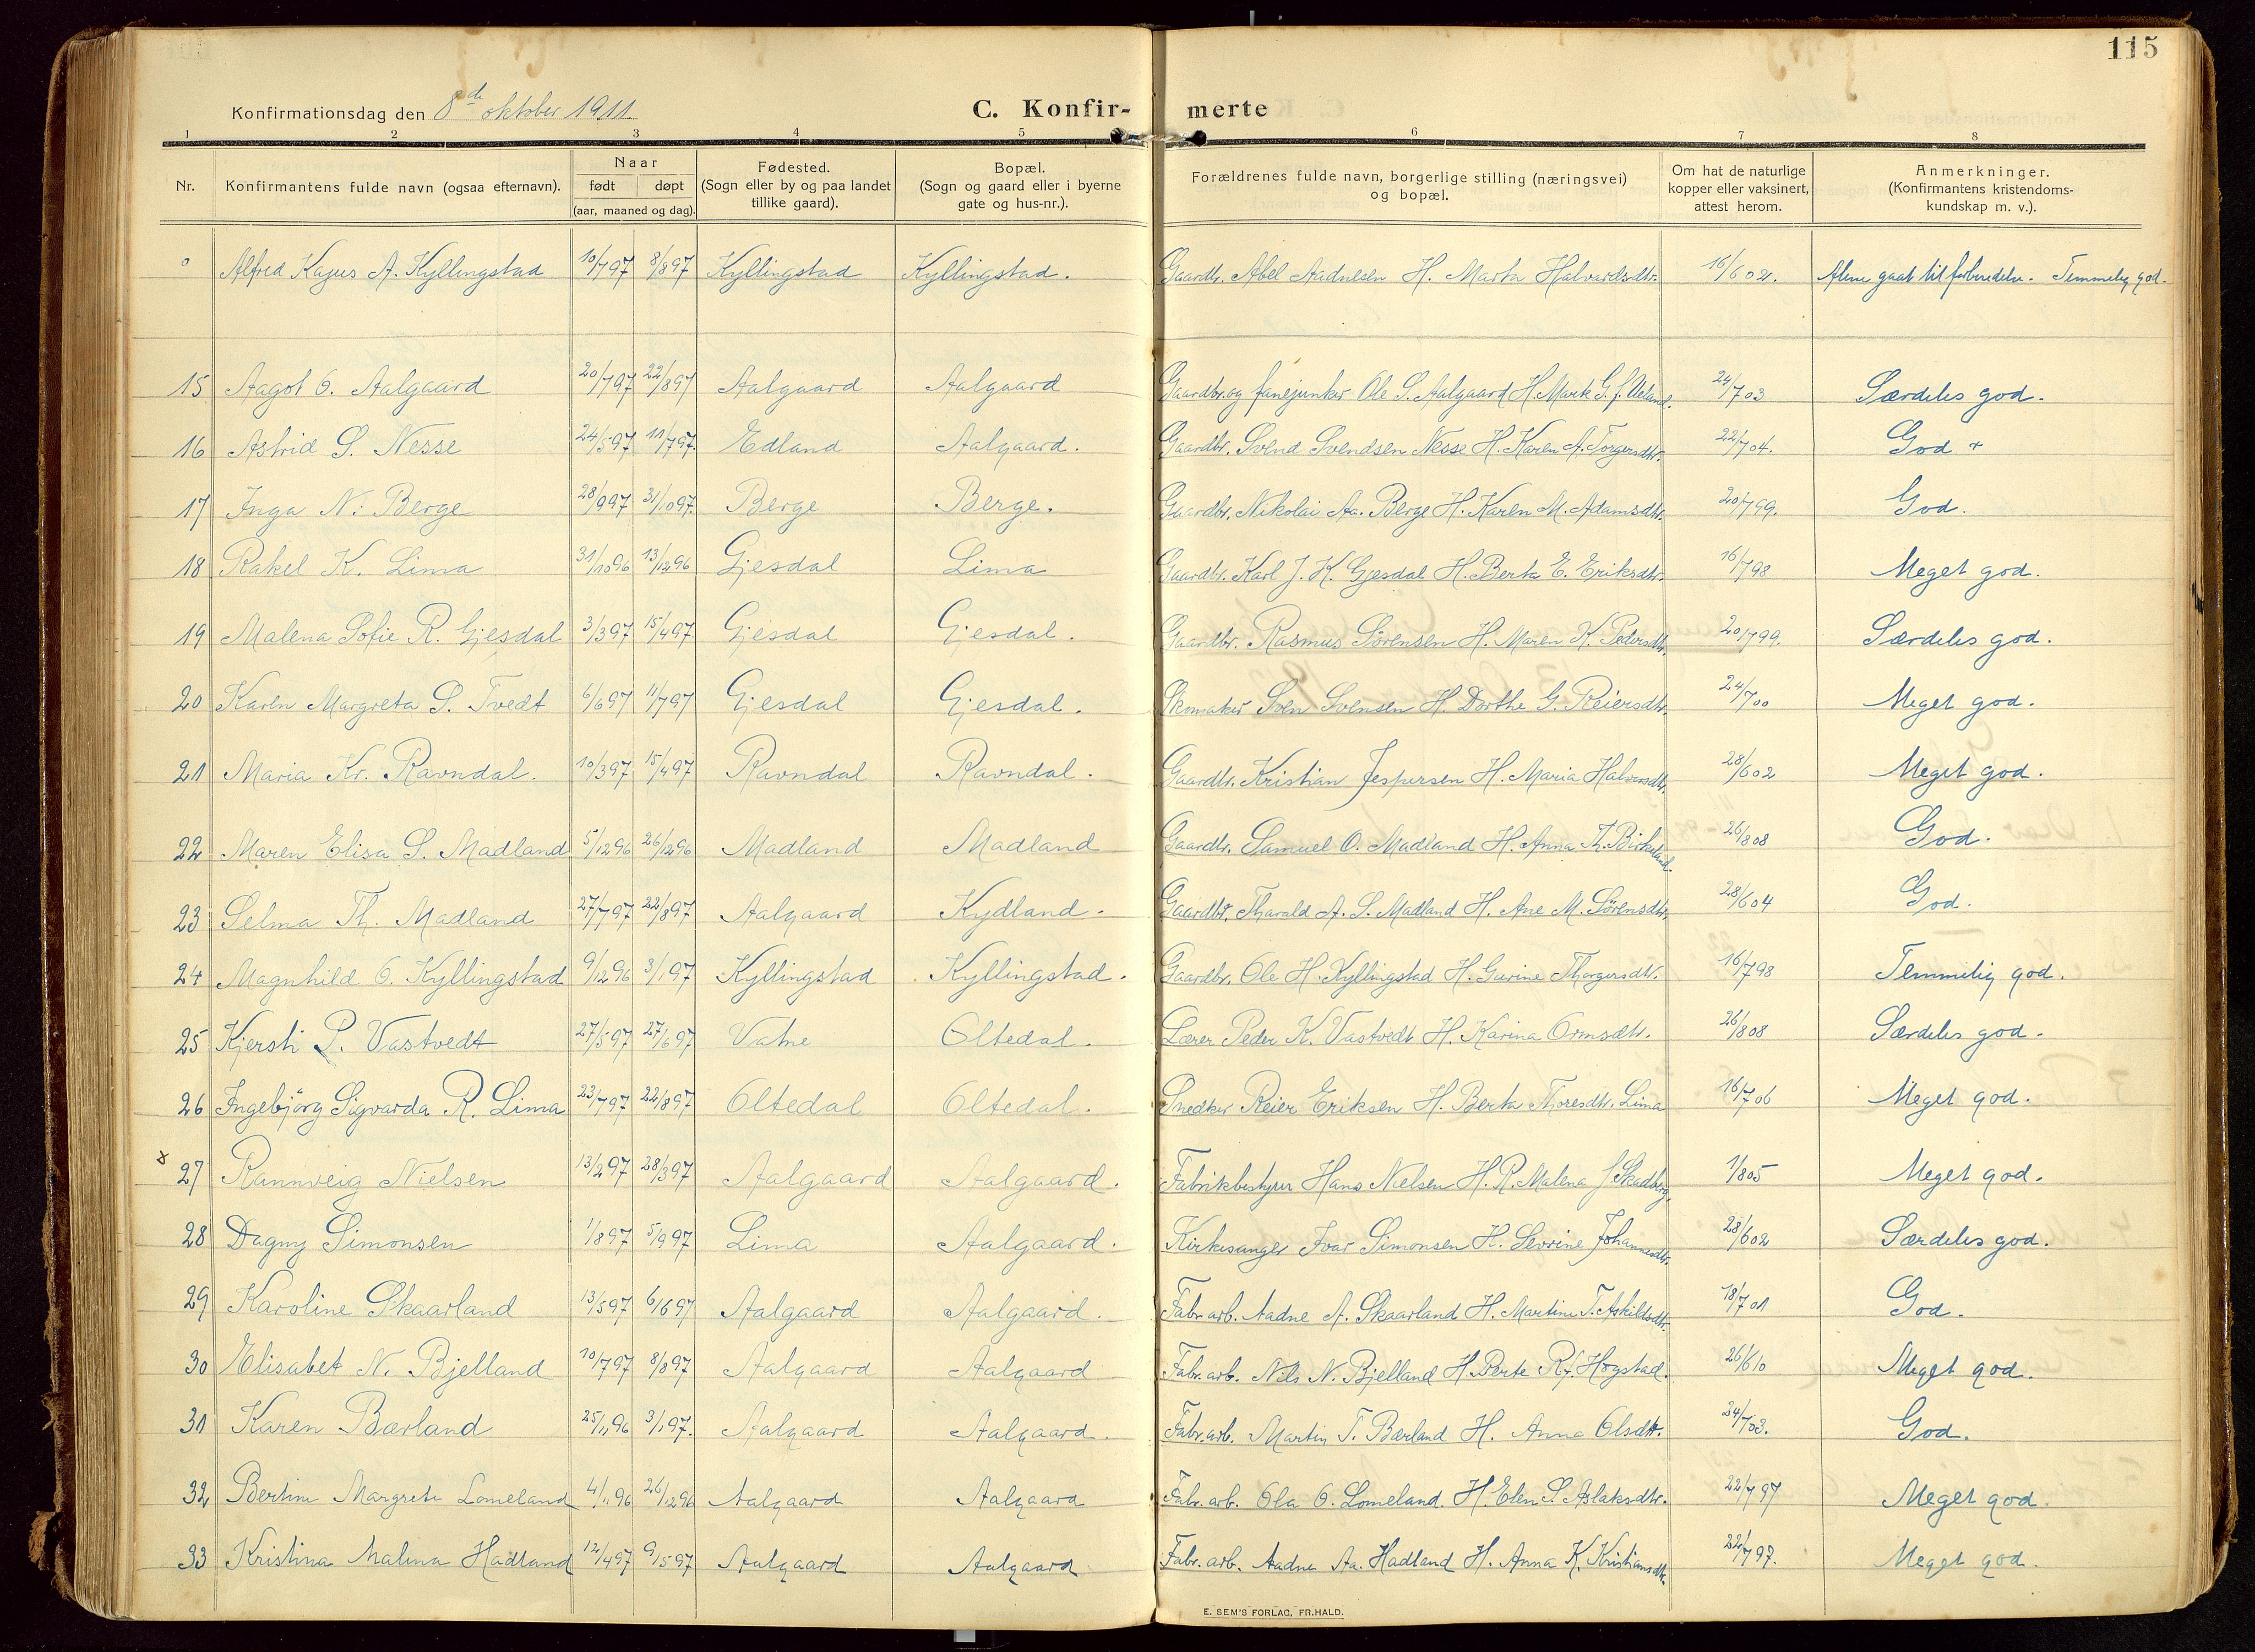 115
Konfirmationsdag den 8de oktober 1911.
C. Konfir- merte
1 2 3 4 5 6 7 8
Nr. Konfirmantens fulde navn (ogsaa efternavn). Naar født døpt (aar, maaned og dag). Fødested. (Sogn eller by og paa landet tillike gaard). Bopæl. (Sogn og gaard eller i byerne gate og hus-nr.). Forældrenes fulde navn, borgerlige stilling (næringsvei) og bopæl. Om hat de naturlige kopper eller vaksinert, attest herom. Anmerkninger. (Konfirmantens kristendoms-kundskap m. v.).
Alfred Kajus A. Kyllingstad 10/7 97 8/8 97 Kyllingstad Kyllingstad. Gaardbr. Abel Aadnesen H. Marta Halvardsdtr. 16/6 02. Alene gaat til forberedelse. Temmelig god.
15 Aagot O. Aalgaard 20/7 97 22/8 97 Aalgaard Aalgaard Gaardbr. og fanejunker Ole S. Aalgaard H. Marte G. f. Ueland. 24/7 03 Særdeles god.
16 Astrid S. Nesse 24/5 97 11/7 97. Edland Aalgaard. Gaardbr. Svend Svendsen Nesse H. Karen A. Torgersdtr. 22/7 04. God +
17 Inga N. Berge 28/9 97 31/10 97. Berge Berge. Gaardbr. Nikolai Aa. Berge H. Karen M. Adamsdtr. 20/7 99. God.
18 Rakel K. Lima 31/10 96 13/12 96 Gjesdal Lima Gaardbr. Karl J. K. Gjesdal H. Berta E. Eriksdtr. 16/7 98 Meget god.
19 Malena Sofie R. Gjesdal 3/3 97 15/4 97. Gjesdal Gjesdal. Gaardbr. Rasmus Sörensen H. Maren K. Pedersdtr. 20/7 99. Særdeles god.
20 Karen Margreta S. Tvedt 6/6 97 11/7 97 Gjesdal Gjesdal. Skomaker Sven Svensen H. Dorthe G. Reiersdtr. 24/7 00 Meget god.
21 Maria Kr. Ravndal. 10/3 97 15/4 97 Ravndal Ravndal. Gaardbr. Kristian Jespersen H. Maria Halvorsdtr. 28/6 02 Meget god.
22 Maren Elisa S. Madland 5/12 96 26/12 96 Madland Madland Gaardbr. Samuel O. Madland H. Anna Th. Birkeland. 26/8 08 God.
23 Selma Th. Madland 27/7 97 22/8 97 Aalgaard Kydland. Gaardbr. Tharald A. S. Madland H. Ane M. Sörensdtr. 28/6 04 God.
24 Magnhild O. Kyllingstad 9/12 96 3/1 97 Kyllingstad Kyllingstad. Gaardbr. Ole H. Kyllingstad H. Gurine Thorgersdtr. 16/7 98 Temmelig god.
25 Kjersti P. Vastvedt 27/5 97 27/6 97 Vatne Oltedal. Lærer Peder K. Vastvedt H. Karina Ormsdtr. 26/8 08 Særdeles god.
26 Ingebjörg Sigvarda R. Lima 23/7 97 22/8 97 Oltedal Oltedal. Snedker Reier Eriksen H. Berta Thoresdtr. Lima 16/7 06 Meget god.
x 27 Rannveig Nielsen 13/2 97 28/3 97 Aalgaard Aalgaard. Fabrikbestyrer Hans Nielsen H. R. Malena f Skadberg. 1/8 05 Meget god.
28 Dagny Simonsen 1/8 97 5/9 97 Lima Aalgaard. Kirkesanger Ivar Simonsen H. Severine Johannesdtr. 28/6 02 Særdeles god.
29 Karoline Skaarland 13/5 97 6/6 97 Aalgaard Aalgaard. Fabr. arb. Aadne A. Skaarland H. Martine T. Askildsdtr. 18/7 01 God.
30 Elisabet N. Bjelland 10/7 97 8/8 97 Aalgaard Aalgaard Fabr. arb. Nils N. Bjelland H. Berte R. f. Hogstad. 26/6 10 Meget god.
31 Karen Bærland 25/11 96 3/1 97. Aalgaard Aalgaard. Fabr. arb. Martin T. Bærland H. Anna Olsdtr. 24/7 03. God.
32 Bertine Margrete Lomeland 4/11 96 26/12 96 Aalgaard Aalgaard Fabr. arb. Ola O. Lomeland. H. Elen S. Aslaksdtr. 22/7 97 Meget god.
33 Kristina Malena Hadland 12/4 97 9/5 97 Aalgaard Aalgaard Fabr. arb. Aadne Aa. Hadland H. Anna K. Kristiansdtr. 22/7 97. Meget god.
E. SEM'S FORLAG, FR.HALD.